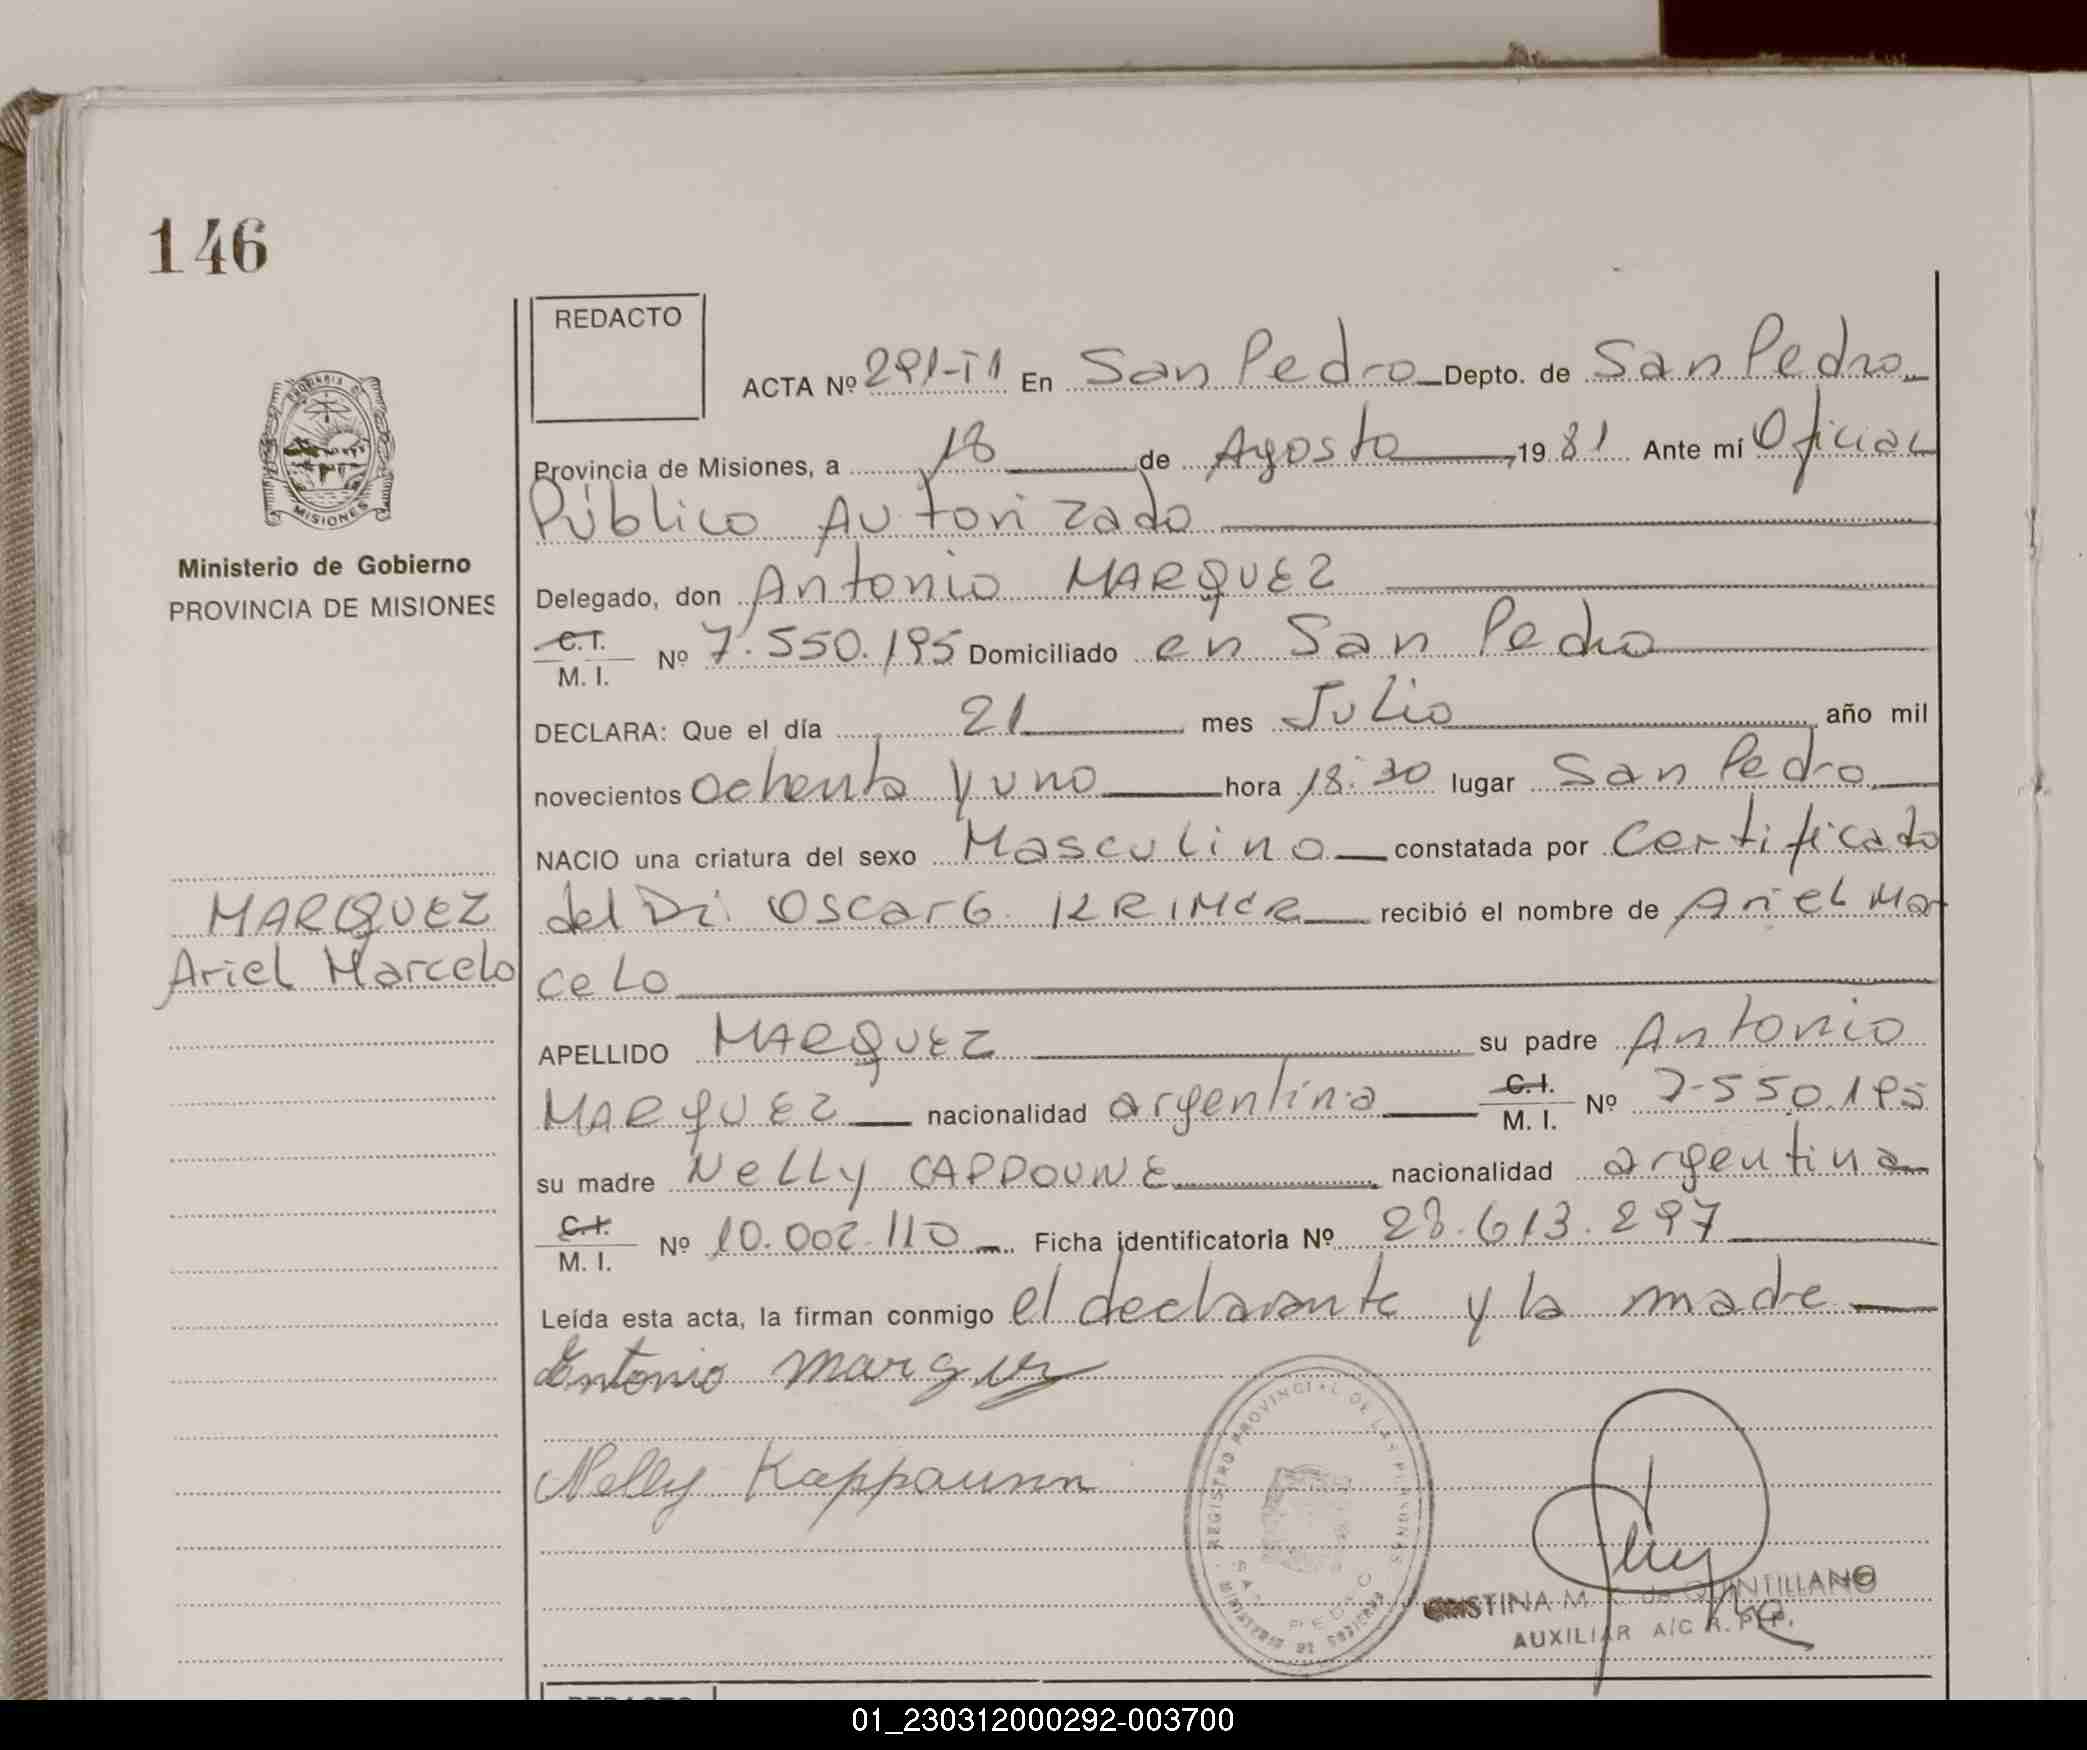 146
REDACTO
ACTA Nº 291-T1 En San Pedro Depto. de San Pedro
Provincia de Misiones, a 18 de Agosto, 1981 Ante mí Oficial
Público Autorizado
Delegado, don Antonio MARQUEZ
C.I. M.I. Nº 7.550.195 Domiciliado en San Pedro
DECLARA: Que el día 21 mes Julio año mil
novecientos ochenta y uno hora 18:30 lugar San Pedro
NACIO una criatura del sexo Masculino constatada por Certificado
del Dr. Oscar G. KRIMER recibió el nombre de Ariel Mar
celo
APELLIDO MARQUEZ su padre Antonio
MARQUEZ nacionalidad argentina C.I. M.I. Nº 7.550.195
su madre NeLLy CAPPOUNE nacionalidad argentina
C.I. M.I. Nº 10.002.110 Ficha identificatoria Nº 28.613.297
Leída esta acta, la firman conmigo el declarante y la madre
Antonio Marquez
Nelly Kappaunn
MISIONES
Ministerio de Gobierno
PROVINCIA DE MISIONES
MARQUEZ
Ariel Marcelo
REGISTRO PROVINCIAL DE LAS PERSONAS
SAN PEDRO
CRISTINA M. de QUINTILLANO
AUXILIAR A/C R.P.P.
REDACTO
01_230312000292-003700